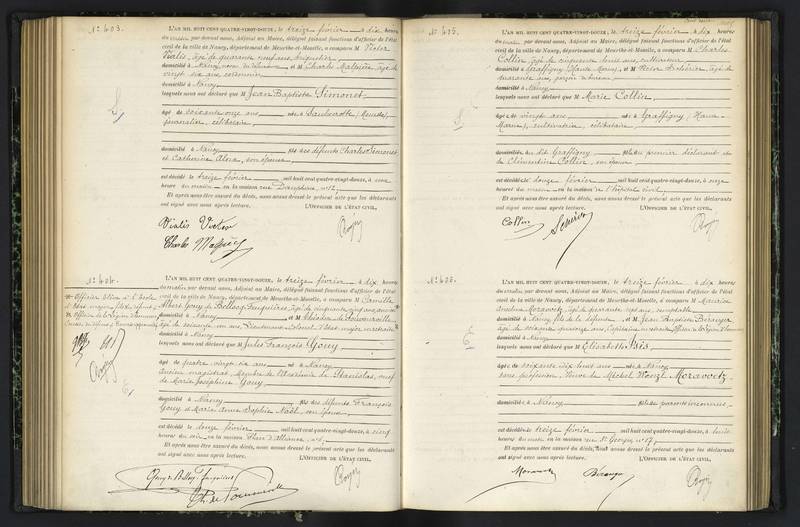 N° 403.
L'AN MIL HUIT CENT QUATRE-VINGT-DOUZE, le treize février à dix heures
du matin par devant nous, Adjoint au Maire, délégué faisant fonctions d'officier de l'état
civil de la ville de Nancy, département de Meurthe-et-Moselle, a comparu M Victor
Vialis, âgé de quarante neuf ans,
domicilié à Nancy, et M Charles âgé de
vingt six ans
domicilié à Nancy
lesquels nous ont déclaré que M Jean Baptiste Simonet
âgé de soixante onze ans né à (Meuse),
journalier, célibataire
domicilié à Nancy fils des défunts Charles Simonet
et Catherine son épouse
est décédé le treize février mil huit cent quatre-vingt-douze, à une
heure du matin en la maison rue Dauphine, n° 12,
Et après nous être assuré du décès, nous avons dressé le présent acte que les déclarants
ont signé avec nous après lecture. L'OFFICIER DE L'ÉTAT CIVIL,
Vialis Victor
Charles
N° 404.
L'AN MIL HUIT CENT QUATRE-VINGT-DOUZE, le treize février à dix heures
du matin, par devant nous, Adjoint au Maire, délégué faisant fonctions d'officier de l'état
civil de la ville de Nancy, département de Meurthe-et-Moselle, a comparu M Camille
Albert Gouy de Bellocq Feuquières, âgé de cinquante cinq ans,
domicilié à Nancy et M Théodore
âgé de soixante un ans, Lieutenant Colonel d'Etat major en retraite
domicilié à Nancy
lesquels nous ont déclaré que M Jules François Gouy
âgé de quatre vingt six ans né à Nancy
Ancien magistrat, Membre de l'Académie de Stanislas, veuf
de Marie Joséphine Gouy
domicilié à Nancy fils des défunts François
Gouy et Marie Anne Sophie Noël, son épouse
est décédé le douze février mil huit cent quatre-vingt-douze, à cinq
heures du soir en la maison Place d'Alliance, n° 6,
Et après nous être assuré du décès, nous avons dressé le présent acte que les déclarants
ont signé avec nous après lecture. L'OFFICIER DE L'ÉTAT CIVIL,
Gouy de Bellocq Feuquières
N° 405.
L'AN MIL HUIT CENT QUATRE-VINGT-DOUZE, le treize février à dix heures
du matin, par devant nous, Adjoint au Maire, délégué faisant fonctions d'officier de l'état
civil de la ville de Nancy, département de Meurthe-et-Moselle, a comparu M Charles
Collin, âgé de cinquante huit ans, cultivateur
domicilié à Graffigny (Haute Marne), et M Victor âgé de
quarante ans, garçon de bureau
domicilié à Nancy
lesquels nous ont déclaré que M Marie Collin,
âgée de vingt ans née à Graffigny (Haute
Marne), cultivatrice, célibataire
domiciliée au dit Graffigny fille du premier déclarant et
de Clémentine Collin, son épouse
est décédée le douze février mil huit cent quatre-vingt-douze, à onze
heures du matin en la maison de l'hôpital civil,
Et après nous être assuré du décès, nous avons dressé le présent acte que les déclarants
ont signé avec nous après lecture. L'OFFICIER DE L'ÉTAT CIVIL,
Collin
N° 406.
L'AN MIL HUIT CENT QUATRE-VINGT-DOUZE, le treize février à dix heures
du matin, par devant nous, Adjoint au Maire, délégué faisant fonctions d'officier de l'état
civil de la ville de Nancy, département de Meurthe-et-Moselle, a comparu M Maurice
Moravetz, âgé de quarante sept ans, comptable
domicilié à Nancy, fils de la défunte, et M Jean Baptiste Béranger
âgé de soixante quinze ans, Capitaine en retraite, Officier de la Légion d'honneur
domicilié à Nancy
lesquels nous ont déclaré que M Elisabeth Bris
âgée de soixante dix huit ans née à Nancy
sans profession, Veuve de Michel Wenzl Moravetz
domiciliée à Nancy fille de parents inconnus
est décédée le treize février mil huit cent quatre-vingt-douze, à huit
heures du matin en la maison rue St Georges, n° 47,
Et après nous être assuré du décès, nous avons dressé le présent acte que les déclarants
ont signé avec nous après lecture. L'OFFICIER DE L'ÉTAT CIVIL,
Moravetz Béranger